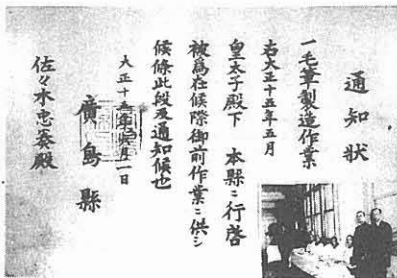 通知状
一毛筆製造作業
右大正十五年五月
皇太子殿下 本縣ニ行啓
被為在候際御前作業ニ供シ
候條此段及通知候也
大正十五年六月一日
廣島縣
佐々木忠 殿